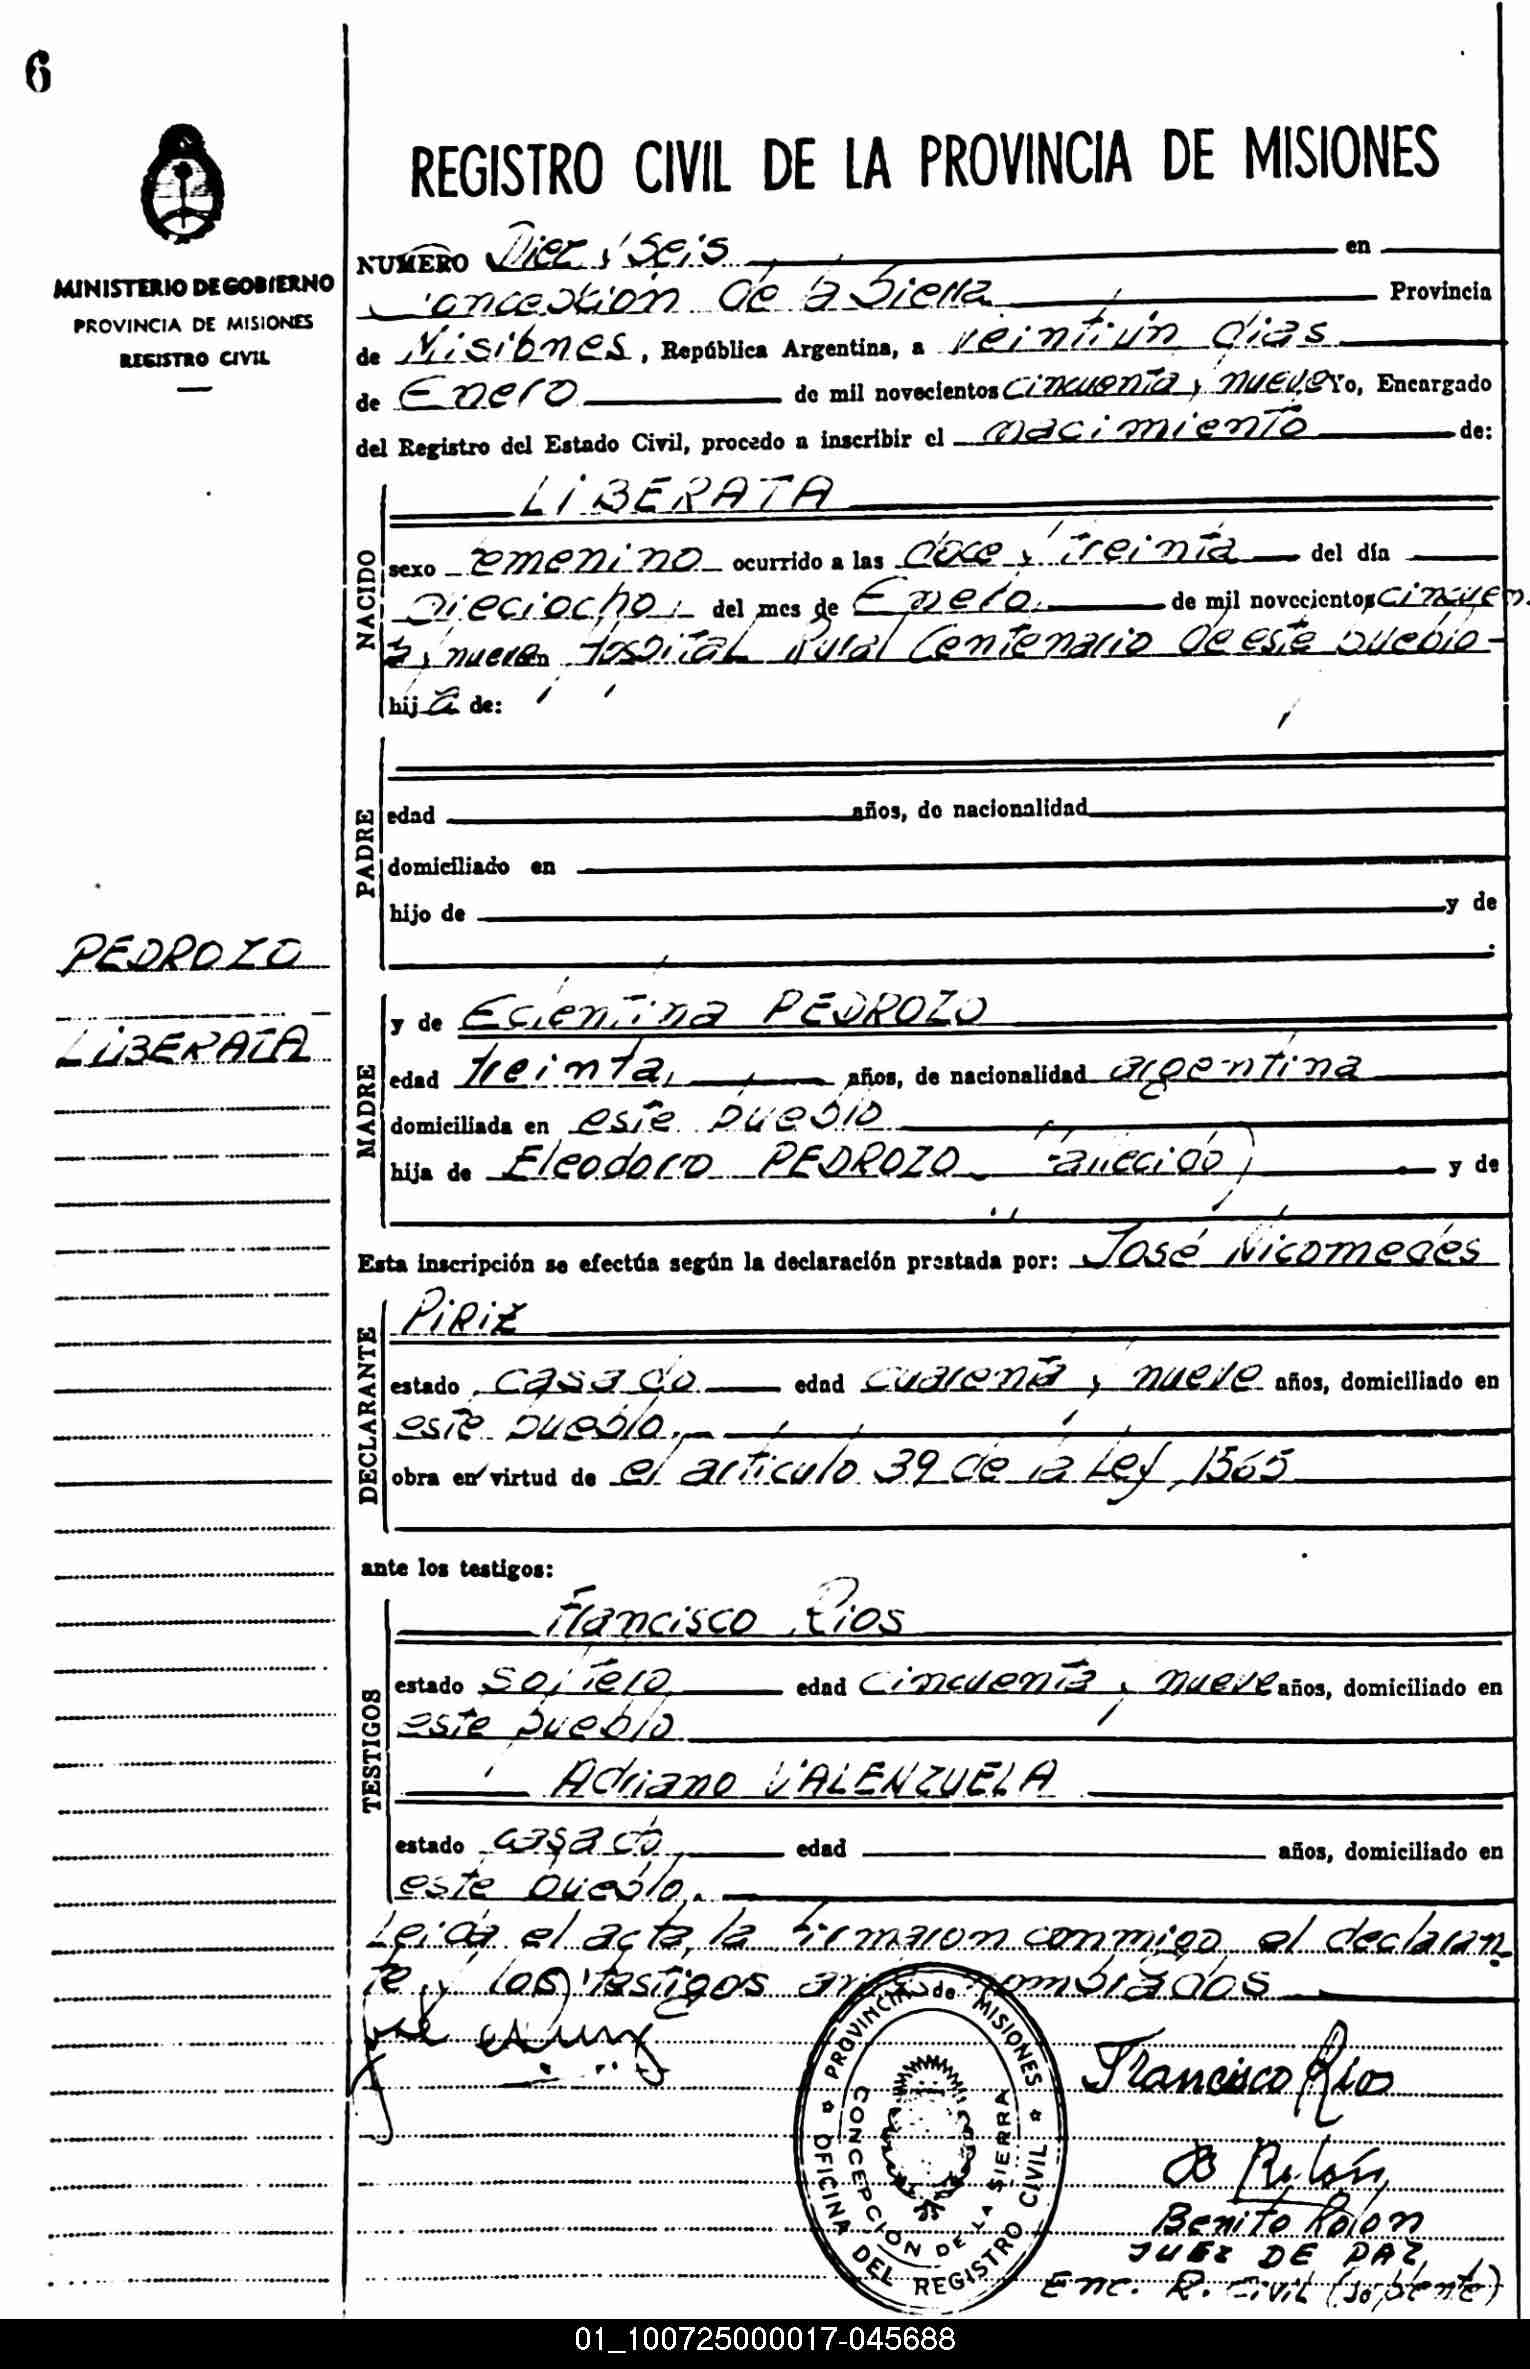 6
REGISTRO CIVIL DE LA PROVINCIA DE MISIONES
MINISTERIO DE GOBIERNO
PROVINCIA DE MISIONES
REGISTRO CIVIL
NUMERO Diez y Seis en
Concepción de la Sierra Provincia
de Misiones, República Argentina, a veintiún dias
de Enero de mil novecientos cincuenta y nueve Yo, Encargado
del Registro del Estado Civil, procedo a inscribir el nacimiento de:
NACIDO
LIBERATA
sexo femenino ocurrido a las doce y treinta del día
dieciocho del mes de Enero de mil novecientos cincuen
ta y nueve en Hospital Rural Centenario de este pueblo
hija de:
PADRE
edad años, de nacionalidad
domiciliado en
hijo de y de
PEDROZO
LIBERATA
MADRE
y de PEDROZO
edad treinta, años, de nacionalidad argentina
domiciliada en este pueblo
hija de Eleodoro PEDROZO (fallecido) y de
Esta inscripción se efectúa según la declaración prestada por: José Nicomedes
DECLARANTE
PIRIZ
estado casado edad cuarenta y nueve años, domiciliado en
este pueblo.
obra en virtud de el articulo 39 de la Ley 1565
ante los testigos:
TESTIGOS
Francisco Rios
estado soltero edad cincuenta y nueve años, domiciliado en
este pueblo
Adriano VALENZUELA
estado casado edad años, domiciliado en
este pueblo.
Leida el acta, la firmaron conmigo el declaran
te y los testigos antes nombrados
PROVINCIA de MISIONES
OFICINA DEL REGISTRO CIVIL
CONCEPCIÓN DE LA SIERRA
Francisco Ríos
B Rolón
Benito Rolon
JUEZ DE PAZ
Enc. R. Civil (Suplente)
01_100725000017-045688